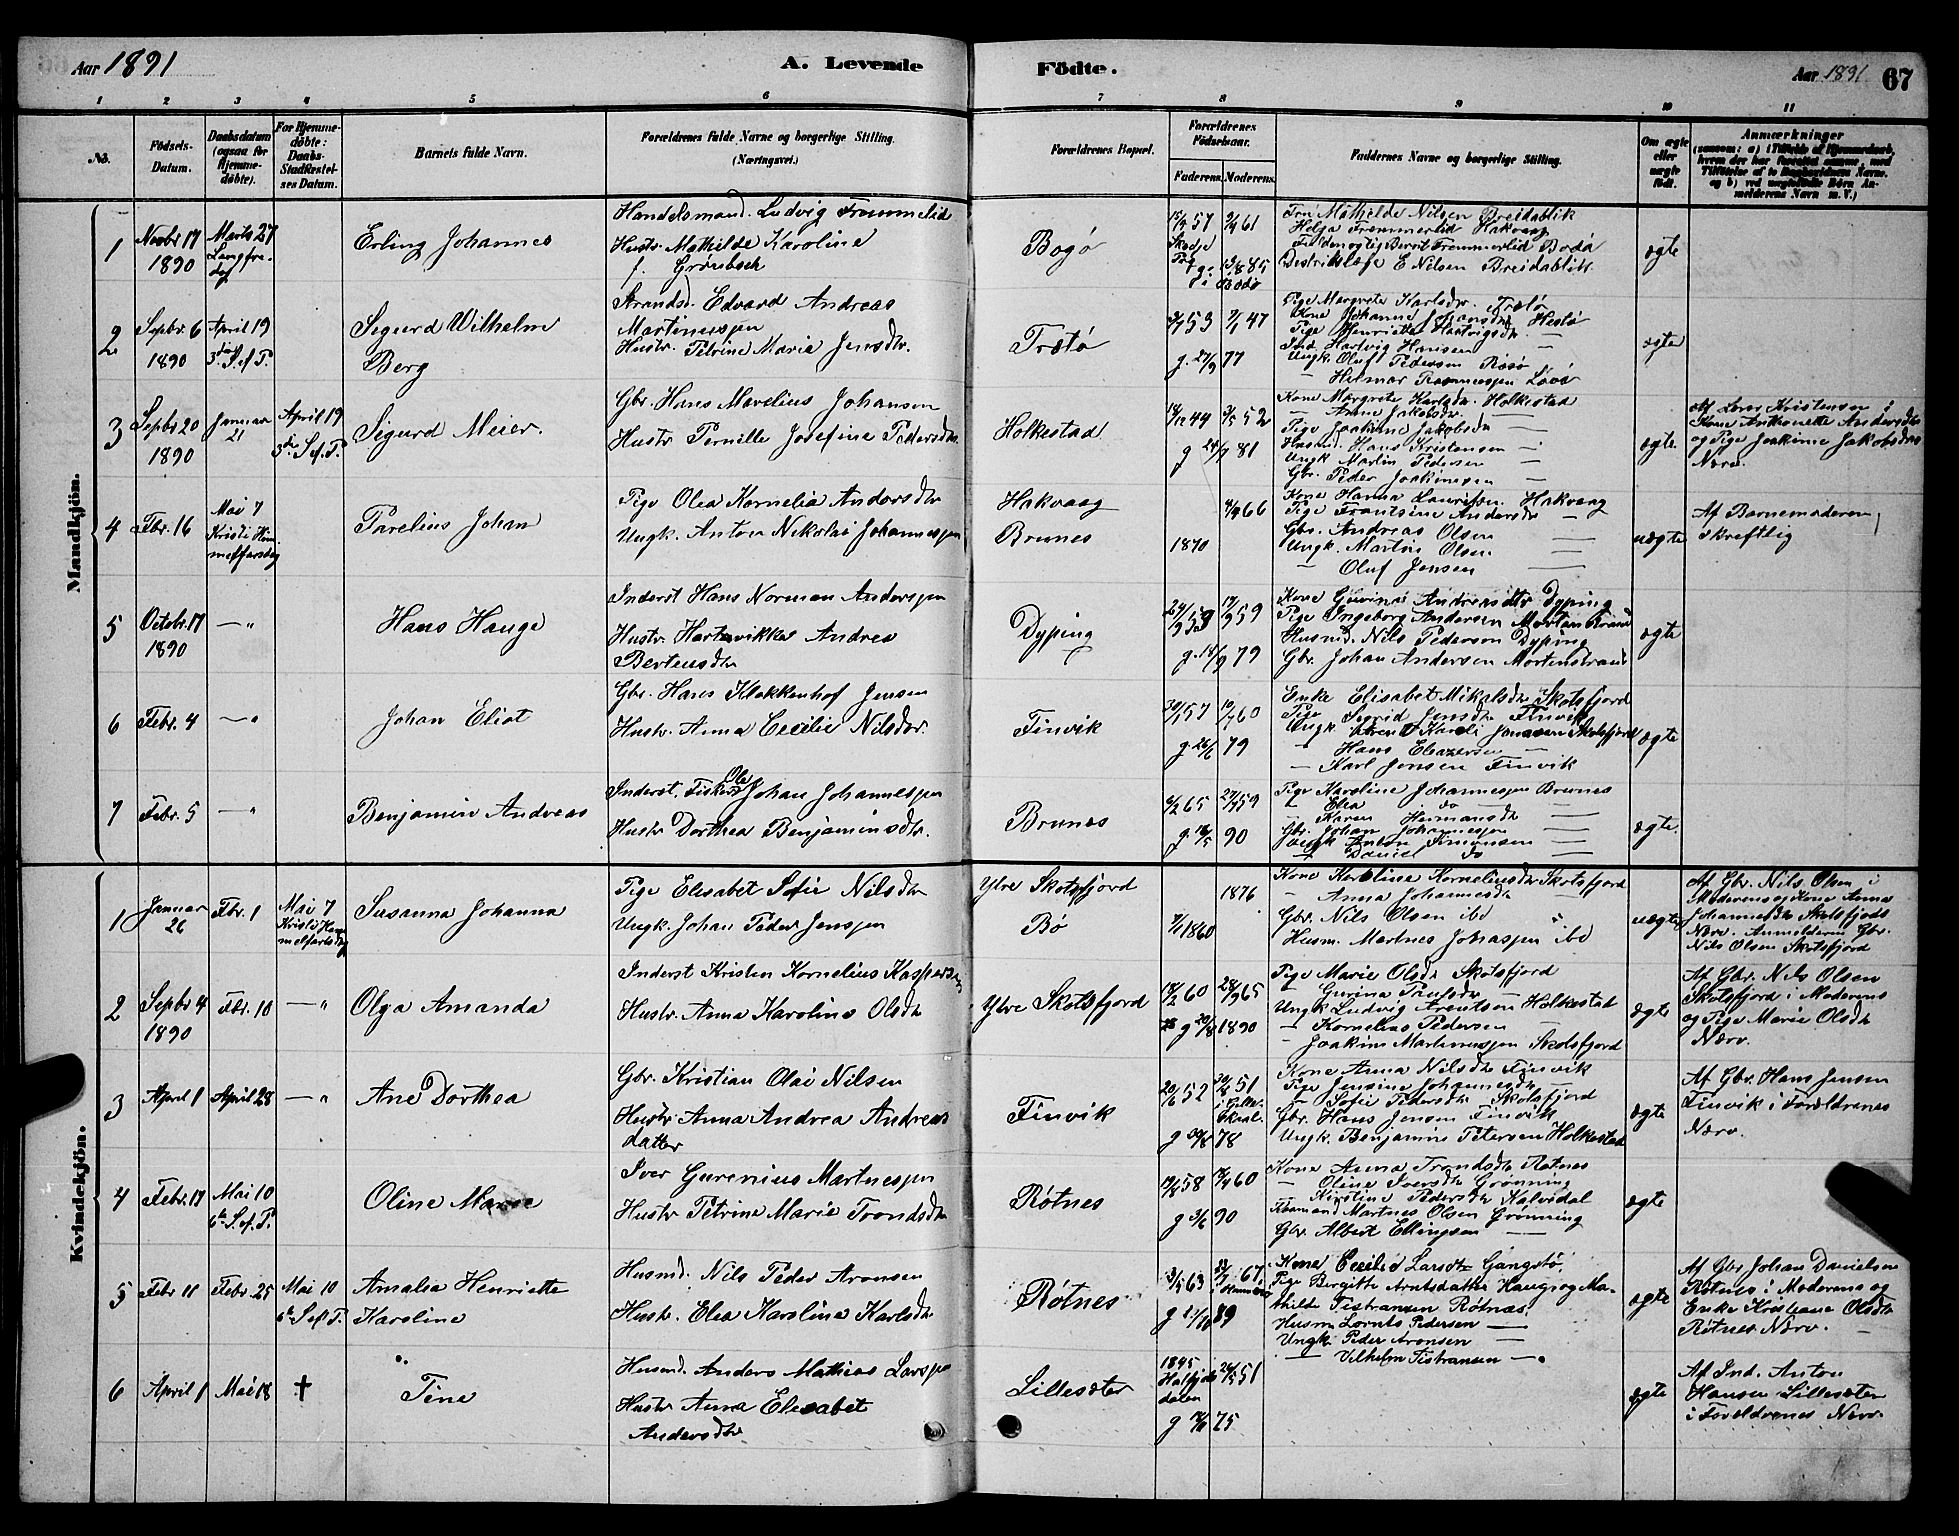 Aar 1891
A. Levende Födte.
Aar 1891
67
1 2 3 4 5 6 7 8 9 10 11
No.
Födsels-Datum.
Daabsdatum (ogsaa for Hjemme-döbte).
For Hjemme-döbte: Daabs-Stadfæstel-ses Datum.
Barnets fulde Navn.
Forældrenes fulde Navne og borgerlige Stilling. (Næringsvei.)
Forældrenes Bopæl.
Forældrenes Födselsaar.
Faderens. Moderens.
Faddernes Navne og borgerlige Stilling.
Om ægte eller uægte födt.
Anmærkninger
Mandkjön.
1
Novbr 17
1890
Marts 27
Langfre-
dag
Erling Johannes
Handelsmand. Ludvig Fremmerlid
Hustr. Mathilde Karoline
f. Grönbech
Bogö
57 61
Mathilde Nilsen Breidablik
Helga Fremmerlid Hakvaag
Berrit Fremmerlid Bodö
Distriktslæge E Nilsen Breidablik
ægte
2
Sepbr 6
1890
April 19
3die S.ef.P.
Sigurd Wilhelm
Berg
Strands. Edvard Andreas
Martinussen
Hustr. Petrine Maria Jensdtr.
Trætö
53 47
g. 27/9 77
Pige Margrete Karlsdtr. Trætö
Kone Johanna Johansdtr Hestö
Pige Henriette Hartvigsdtr —
Ind. Hartvig Hansen —
Ungk. Oluf Pedersen Rösö
— Hilmar Rasmussen Lövö
ægte
3
Sepbr 20
1890
Januar
21
April 19
3die S.ef.P.
Sigurd Meier.
Gbr. Hans Marelius Johansen
Hustr Pernille Josefine Pedersdtr
Holkestad
44 52
g 81
Kone Margrete Karlsdtr. Holkestad
— Anna Jakobsdtr. —
Pige Joakime Jakobsdtr —
Husmd. Hans Kristensen —
Ungk Martin Pedersen —
Gbr. Peder Joakimsen —
ægte
Af Lars Kristensen i
Kone Antonette Andersdtr
og Pige Joakime Jakobsdtrs
Nærv.
4
Fbr. 16
Mai 7
Kristi Him-
melfartsdag
Parelius Johan
Pige Olea Kornelia Andersdtr
Ungk. Anton Nikolai Johannessen
Hakvaag
Brunes
66
1870
Kone Hanna Lauritsen Hakvaag
Pige Frantsine Andersdtr —
Gbr. Andreas Olsen —
Ungk. Martin Olsen —
— Oluf Jensen —
uægte
Af Barnemoderen
skreftlig
5
Octobr. 17
1890
— "
Hans Hauge
Inderst Hans Norman Andersen
Hustr. Hartvikka Andrea
Berteusdtr
Dyping
53 59
g. 79
Kone Andreasdtr Dyping
Pige Ingeborg Andersen Mortenstrand
Husmd. Nils Pedersen Dyping
Gbr. Johan Andersen Mortenstrand
ægte
6
Febr. 4
— "
Johan Eliot
Gbr. Hans Klokkenhof Jensen
Hustr. Anna Cecilie Nilsdtr.
Finvik
57 60
g. 26/6 79
Enke Elisabet Mikalsdtr Skotsfjord
Pige Sigrid Jensdtr Finvik
Hans Eleazersen —
— Karl Jensen Finvik
ægte
7
Febr. 5
— "
Benjamin Andreas
Inderst. Fisker Ole Johan Johannessen
Hustr Dorthea Benjaminsdtr.
Brunes
65 59
g 90
Pige Karoline Johannessen Brunes
— Elea do —
— Karen Hermansdtr —
Gbr. Johan Johannessen —
Ungk Anton Simonsen —
— Daniel do —
ægte.
Kvindekjön.
1
Januar
26
Fbr. 1
Mai 7
Kristi Him-
melfartsdag
Susanna Johanna
Pige Elisabet Sofie Nilsdtr
Ungk. Johan Peder Jenssen
Ytre Skotsfjord
Bø
1876
1860
Kone Karoline Korneliusdtr Skotsfjord
— Anna Johannesdtr —
Gbr. Nils Olsen ibd "
Husm. Martnes Johansen ibd
uægte
Af Gbr. Nils Olsen i
Moderens og Kone Anna
Johannesdtr Skotsfjords
Nærv. Anmelderen Gbr.
Nils Olsen Skotsfjord
2
Sepbr 4
1890
Fbr. 10
— "
Olga Amanda
Inderst Kristen Kornelius Kaspersen
Hustr. Anna Karoline Olsdtr
Ytre Skotsfjord
60 65
g 1890
Pige Marie Olsdtr Skotsfjord
— Gurina Paulsdtr —
Ungk Ludvig Arentsen Holkestad
— Kornelius Pedersen —
— Joakim Martinussen Skotsfjord
ægte
Af Gbr. Nils Olsen
Skotsfjord i Moderens
og Pige Marie Olsdtr
Nærv.
3
April 1
April 28
— "
Ane Dorthea
Gbr. Kristian Olai Nilsen
Hustr Anna Andrea Andreas
datter
Finvik
52 51
g 78
Kone Anna Nilsdtr Finvik
Pige Jensine Johannesdtr —
— Sofie Pedersdtr Skotsfjord
Gbr. Hans Jensen Finvik
Ungk. Benjamin Petersen Holkestad
ægte
Af Gbr. Hans Jensen
Finvik i Foreldrenes
Nærv.
4
Febr. 17
Mai 10
6te S.ef.P.
Oline Marie
Iver Gurenius Martnessen
Hustr Petrine Marie Trondsdtr
Rötnes
58 60
g 3/6 90
Kone Anna Trondsdtr Rötnes
— Oline Iversdtr Grönning
— Kirstine Pedersdtr Kalvedal
Martnes Olsen Grönning
Gbr. Albert Ellingsen —
ægte
5
Febr 11
Febr. 25
Mai 10
6te S.ef.P.
Amalia Henriette
Karoline
Husmd. Nils Peder Aronsen
Hustr. Elea Karoline Karlsdtr
Rötnes
63 67
g 89
Kone Cecilie Larsdtr Gangstö,
Pige Bergitte Arntsdatter Haug og Ma-
thilde Tistransen Rötnæs
Husm Lornts Pedersen —
Ungk Peder Aronsen —
— Vilhelm Tistransen —
ægte
Af Gbr Johan Danielsen
Rötnes i Moderens og
Enke Kristiane Olsdtr
Rötnes Nærv. —
6
April 1
Mai 18
†
Tine
Husmd. Anders Mathias Larsen
Hustr Anna Elesabet
Andersdtr
Lillesæter
1845 51
g 75
ægte
Af Ind. Anton
Hansen Lillesæter
i Foreldrenes Nærv.